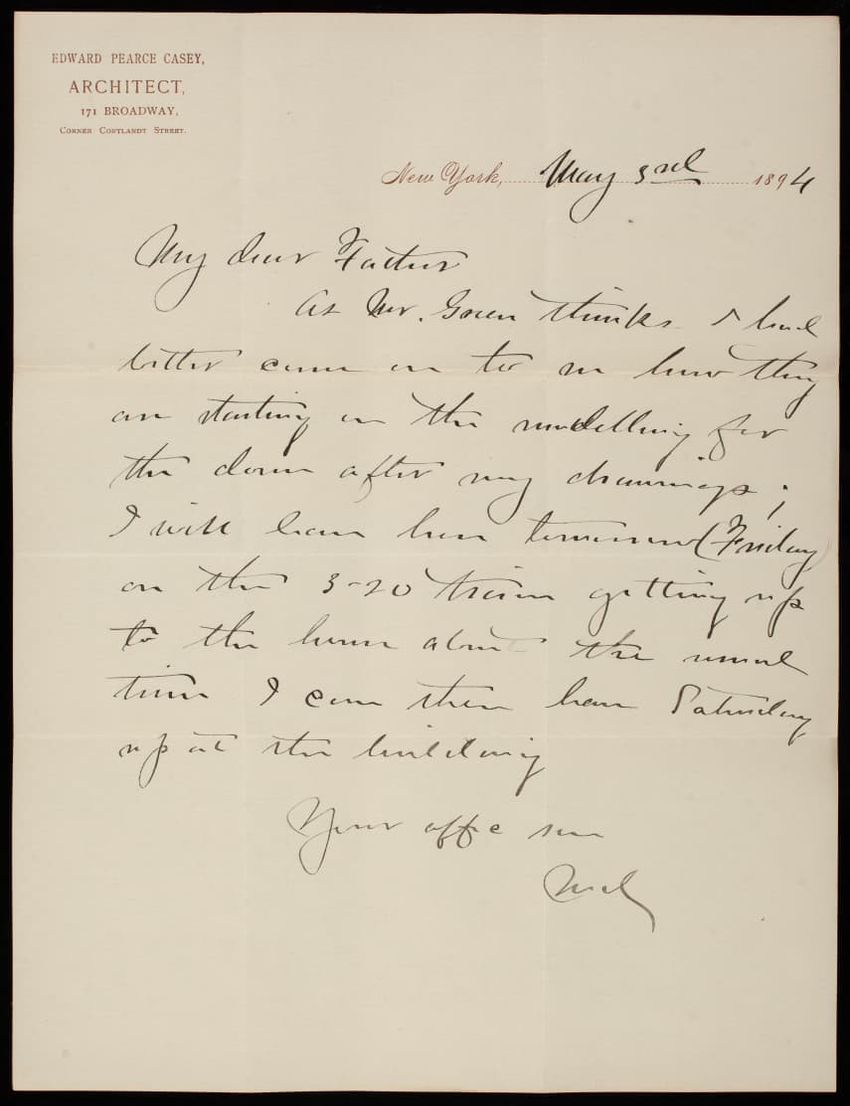 EDWARD PEARCE CASEY,
ARCHITECT,
171 BROADWAY,
CORNER CORTLANDT STREET.
New York, May 3rd 1894
My dear Father
As Mr. Green thinks I had
better come on to see how they
are starting on the modelling for
the dome after my drawings;
I will leave here tomorrow (Friday)
on the 3-20 train getting up
to the house about the usual
time I can then have Saturday
up at the building
Your affe son
Ned